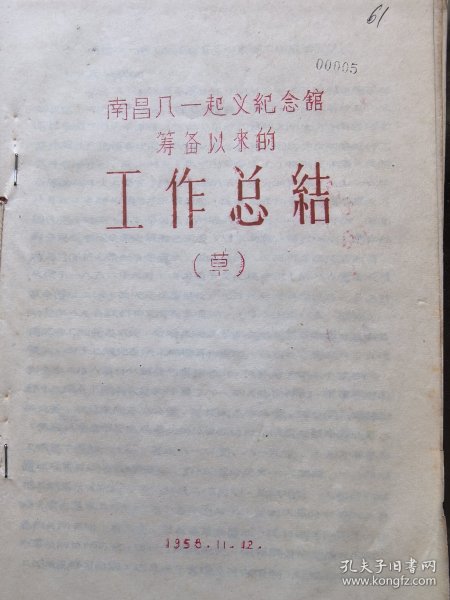 61
00005
南昌八一起义紀念舘
筹备以來的
工作总結
(草)
1958.11.12.
孔夫子旧书网
www.kongfz.com